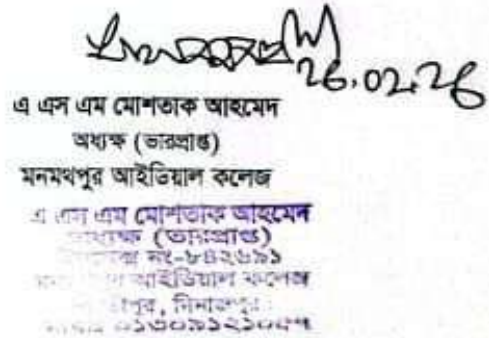 26.02.26
এ এস এম মোশতাক আহমেদ
অধ্যক্ষ (ভারপ্রাপ্ত)
মনমথপুর আইডিয়াল কলেজ
এ এস এম মোশতাক আহমেদ
অধ্যক্ষ (ভারপ্রাপ্ত)
নং-৮৪২৬৯১
আইডিয়াল কলেজ
দিনাজপুর